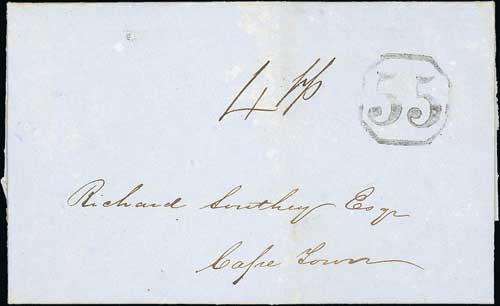 4 pp
55
Richard Southey Esqr
Cape Town